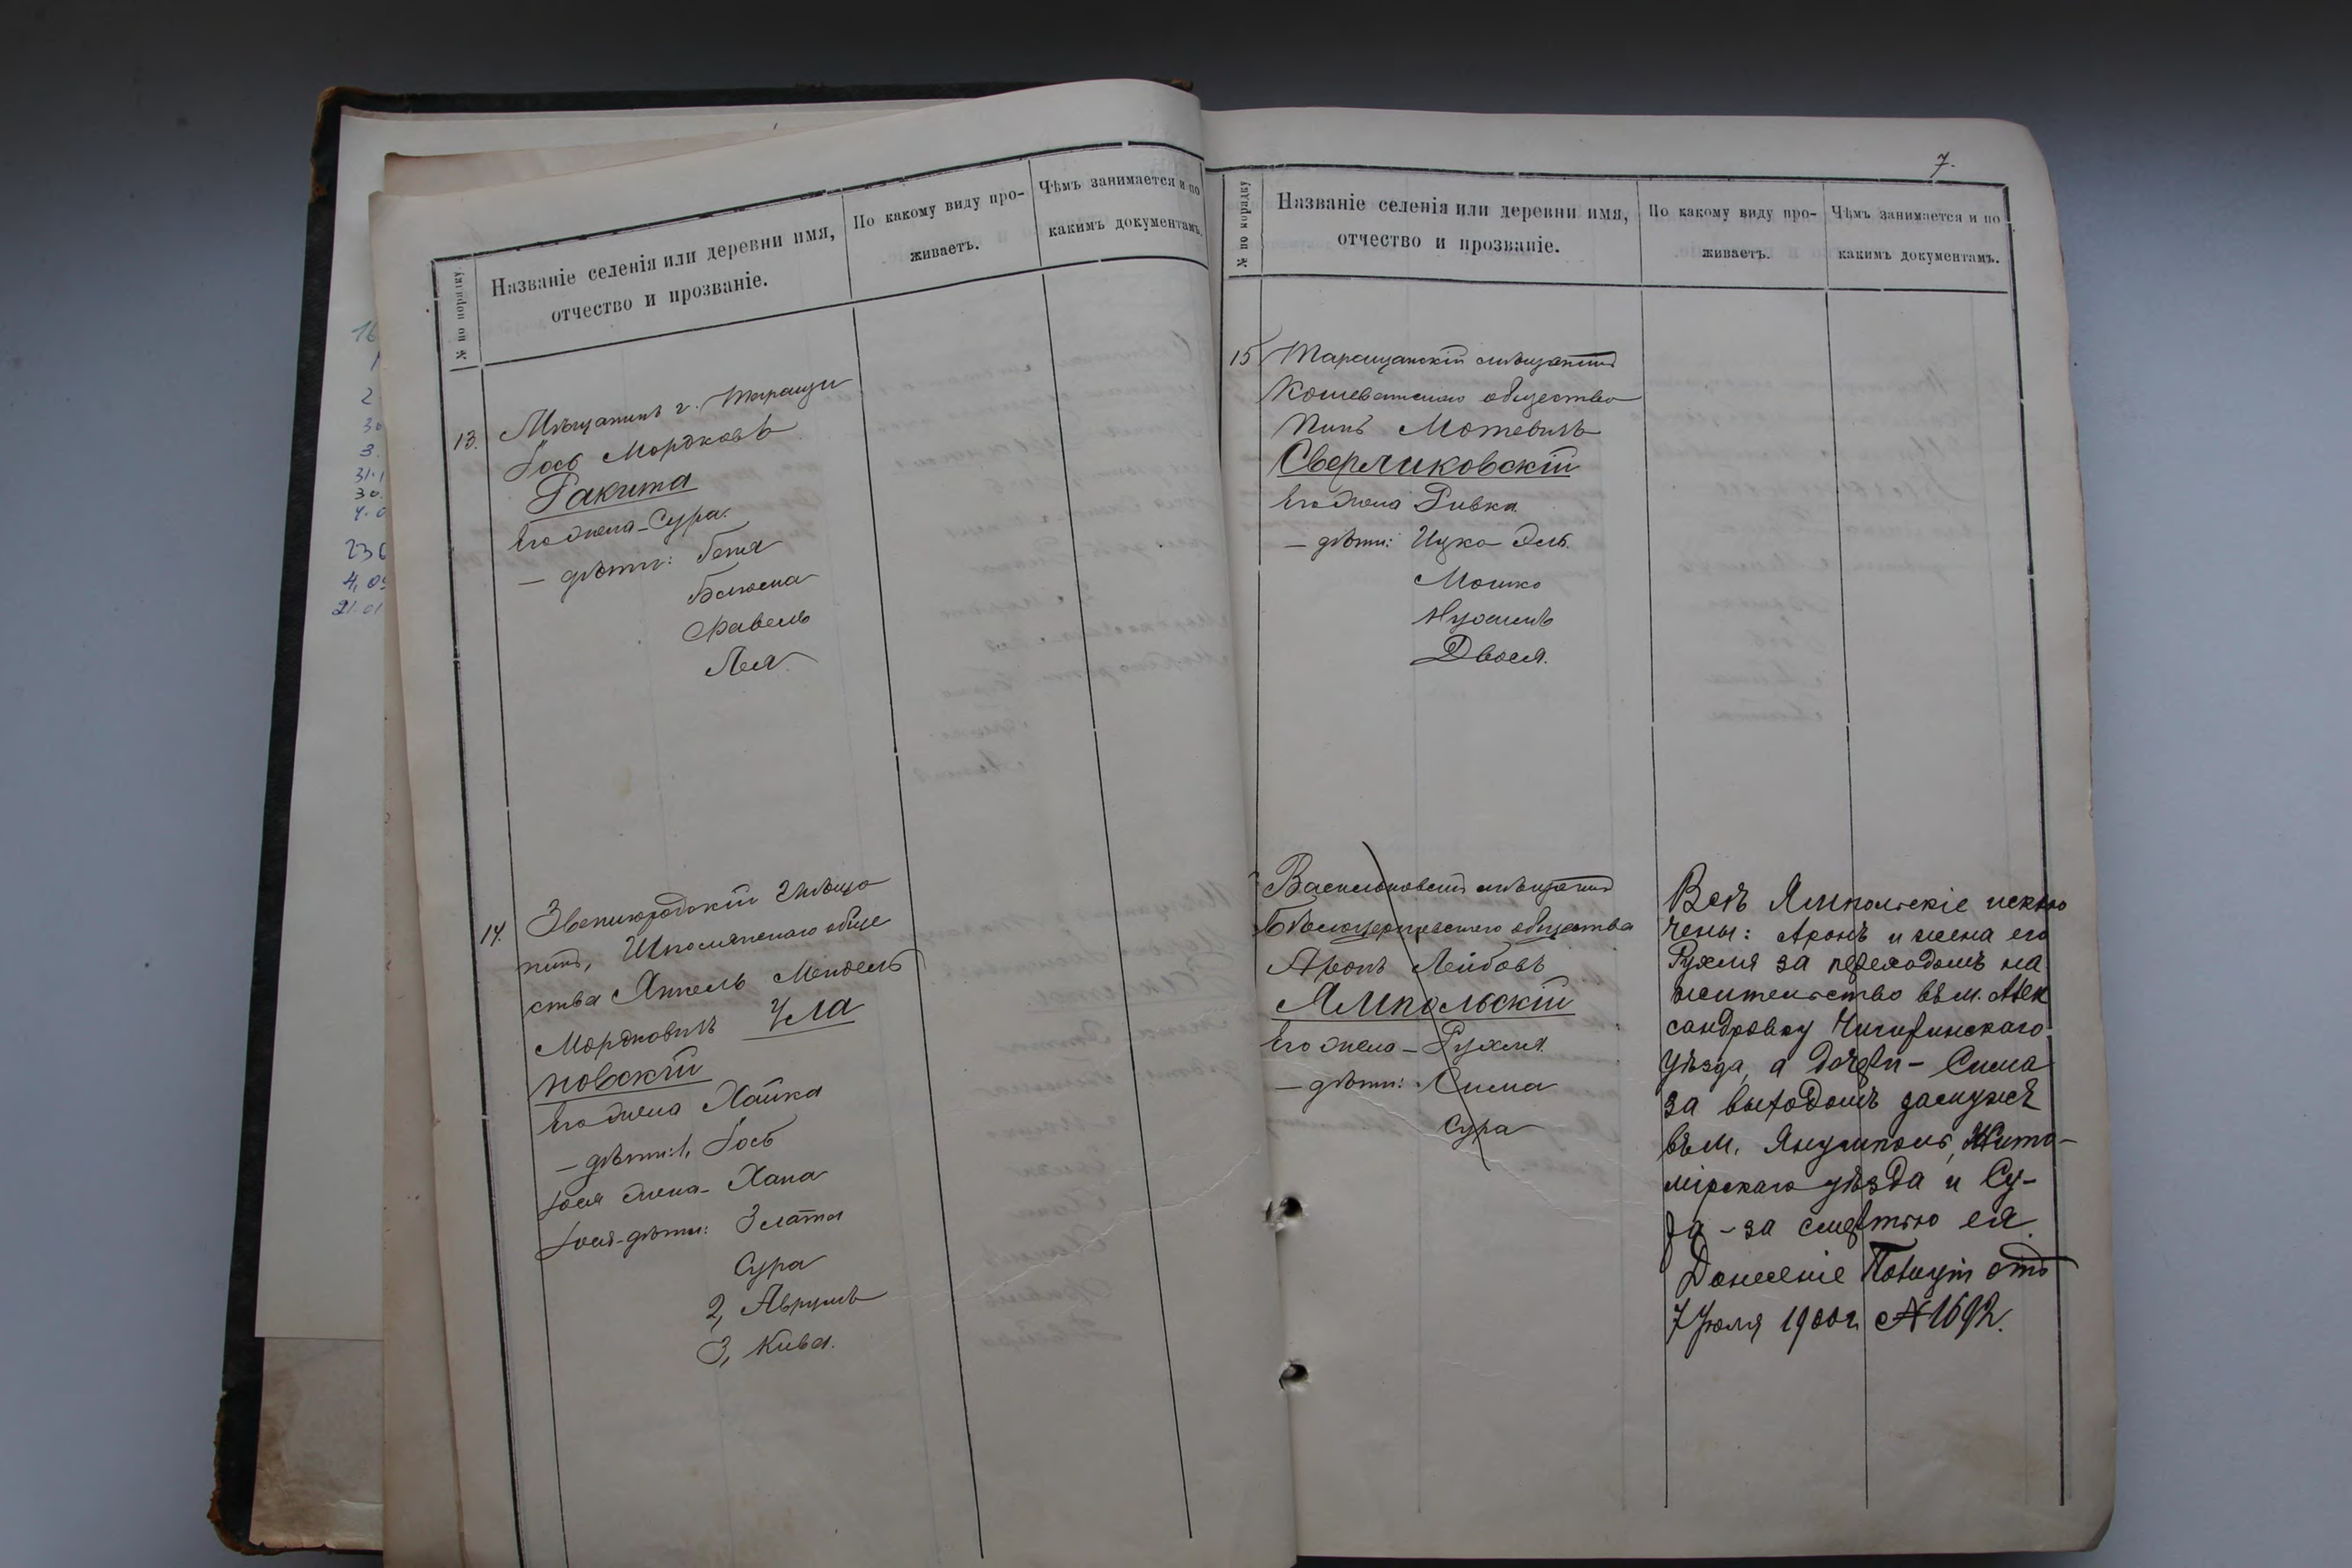 № по порядку.
Названіе селенія или деревни имя,
отчество и прозваніе.
По какому виду про-
живаетъ.
Чѣмъ занимается и по
какимъ документамъ.
13. Мѣщанинъ г. Таращи
Іось Мордковъ
Ракита
Его жена - Сура.
— дѣти: Бетя
Сравель
Лея.
14. Звенигородскій мѣща
нинъ, Шполянскаго обще
ства Янкель Мендель
Мордковичъ Ула
новскій
Его жена Хайка
— дѣти: 1, Іось
Іося жена - Хана
Іося - дѣти: Злата
Сура
2, Аврумъ
3, Кива.
7.
№ по порядку
Названіе селенія или деревни имя,
отчество и прозваніе.
По какому виду про-
живаетъ.
Чѣмъ занимается и по
какимъ документамъ.
15 Таращанскій мѣщанинъ
Кошеватскаго общества
Пинь Мотевичъ
Сверликовскій
Его жена Ривка.
— дѣти: Ицко Эль.
Мошко
Нухимъ
Двося.
Васильковскій мѣщанинъ
Бѣлоцерковскаго общества
Аронъ Лейбовъ
Ямпольскій
Его жена - Рухля.
— дѣти: Сима
Сура
Всѣ Ямпольскіе исклю
чены: Аронъ и жена его
Рухля за переходомъ на
жительство въ м. Алек
сандровку Чигиринскаго
уѣзда, а дочери - Сима
за выходомъ замужъ
въ м. Янушполь, Жито-
мірскаго уѣзда и Су-
ра - за смертью ея.
Донесеніе отъ
7 Іюля 1900 г. № 1692.